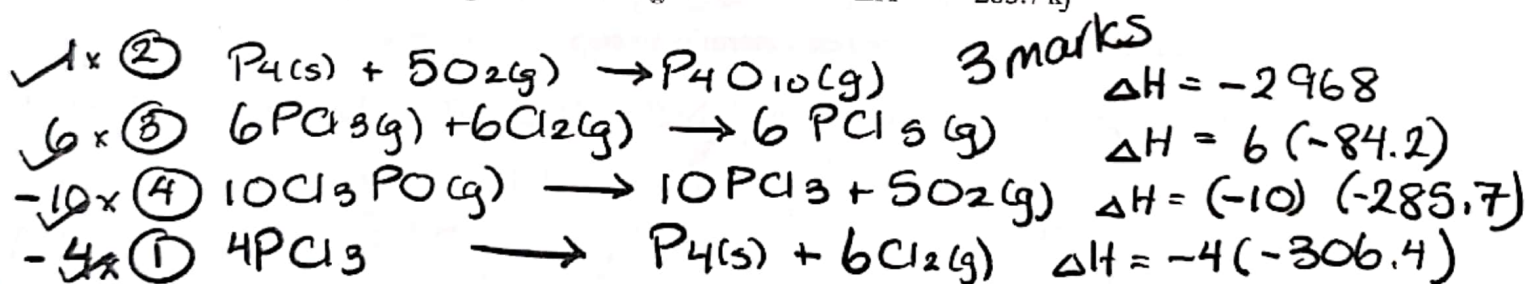 285.7 kJ
3 marks
✓1× ② P4(s) + 5O2(g) → P4O10(g) ΔH = -2968
✓6× ③ 6PCl3(g) + 6Cl2(g) → 6 PCl5(g) ΔH = 6(-84.2)
✓-10× ④ 10Cl3PO(g) → 10PCl3 + 5O2(g) ΔH = (-10) (-285.7)
-4× ① 4PCl3 → P4(s) + 6Cl2(g) ΔH = -4(-306.4)